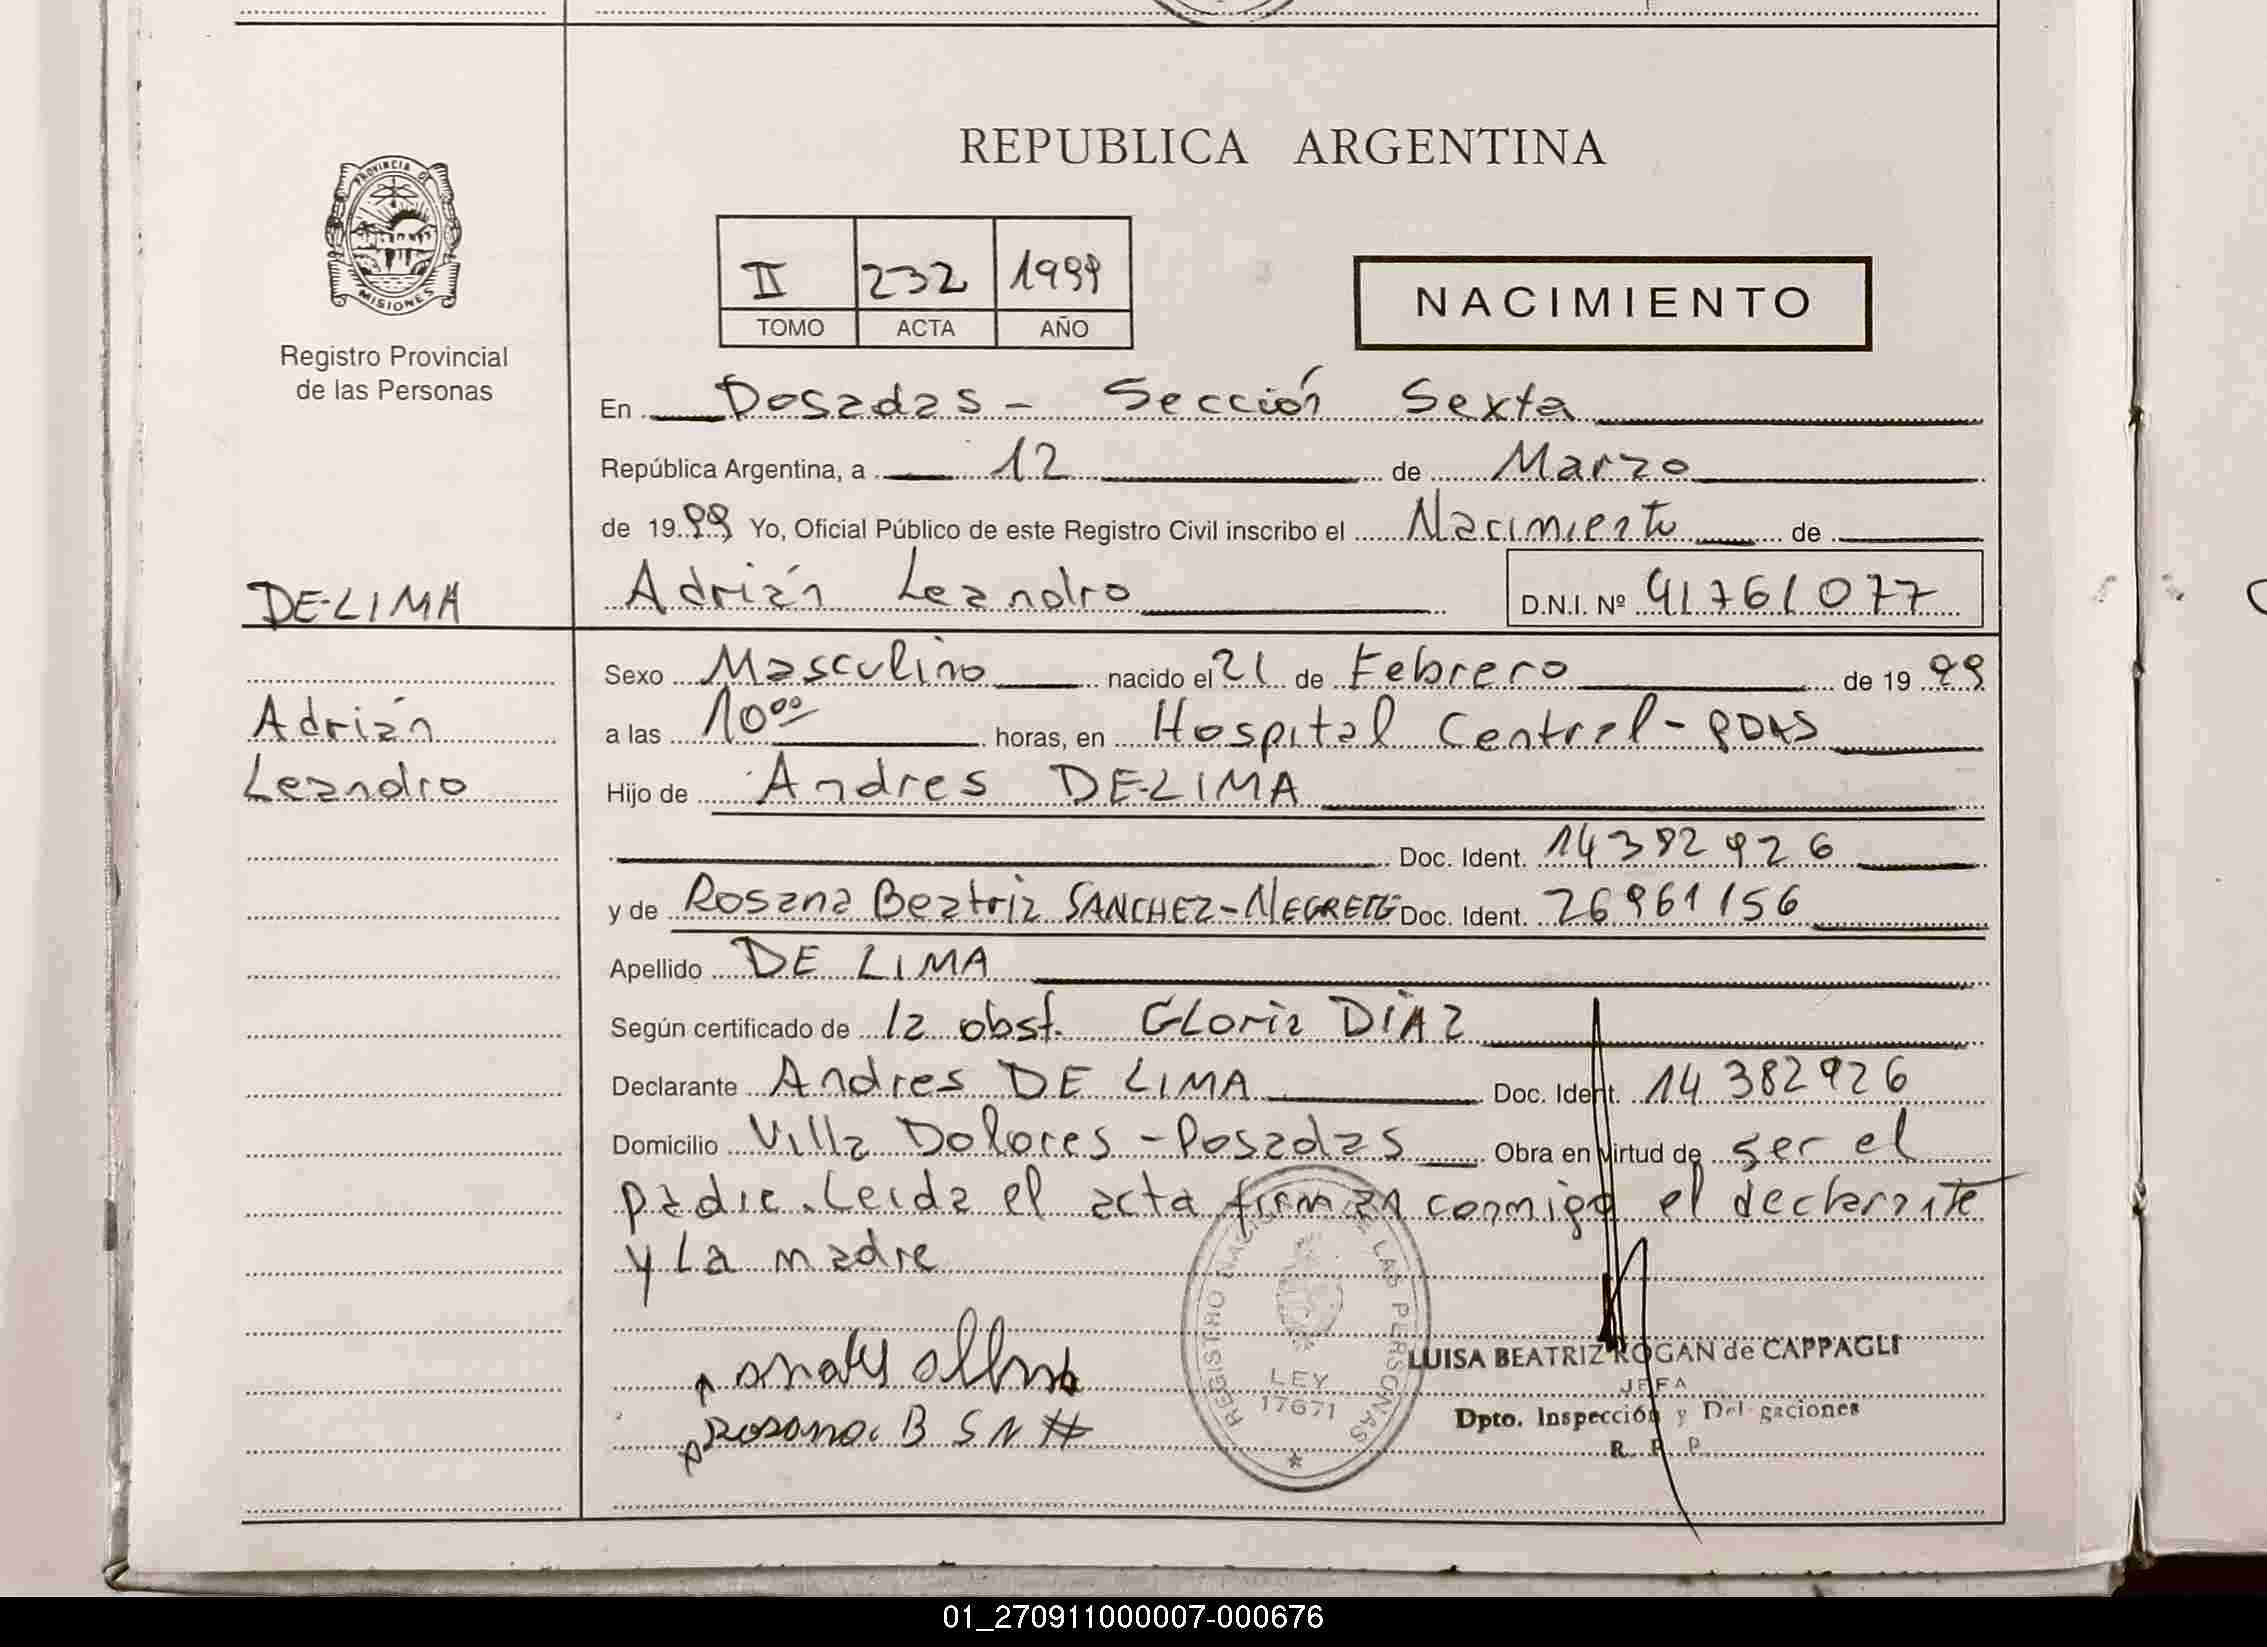 REPUBLICA ARGENTINA
PROVINCIA DE
MISIONES
Registro Provincial
de las Personas
II 232 1999
TOMO ACTA AÑO
NACIMIENTO
En Posadas - Sección Sexta
República Argentina, a 12 de Marzo
de 1999 Yo, Oficial Público de este Registro Civil inscribo el Nacimiento de
DE-LIMA
Adrián Leandro D.N.I. Nº 41761077
Sexo Masculino nacido el 21 de Febrero de 1999
Adrián
Leandro
a las 10⁰⁰ horas, en Hospital Central - PDAS
Hijo de Andres DE-LIMA
Doc. Ident. 14382926
y de Rosana Beatriz SANCHEZ-NEGRETE Doc. Ident. 26961156
Apellido DE LIMA
Según certificado de la obst. Gloria DIAZ
Declarante Andres DE LIMA Doc. Ident. 14382926
Domicilio Villa Dolores - Posadas Obra en virtud de ser el
padre. Leida el acta firman conmigo el declarante
y La madre
Rosana B S N
REGISTRO NACIONAL DE LAS PERSONAS
LEY
17671
LUISA BEATRIZ ROGAN de CAPPAGLI
JEFA
Dpto. Inspección y Delegaciones
R. P. P.
01_270911000007-000676